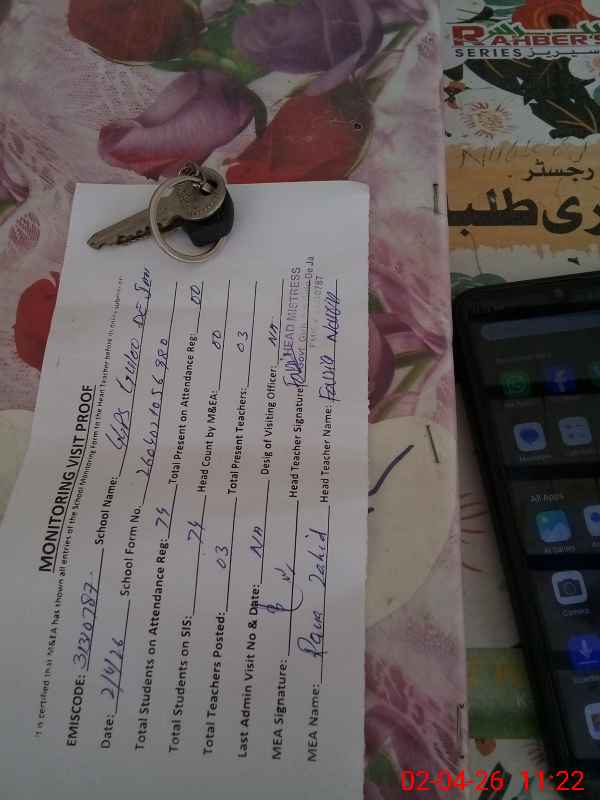 MONITORING VISIT PROOF
It is certified that M&EA has shown all entries of the School Monitoring Form to the Head Teacher before its entry submission
EMISCODE: 31330787 School Name: GGPS
Date: 2/4/26 School Form No. 2604021056980
Total Students on Attendance Reg: 74 Total Present on Attendance Reg: 00
Total Students on SIS: 74 Head Count by M&EA: 00
Total Teachers Posted: 03 Total Present Teachers: 03
Last Admin Visit No & Date: Nil Desig of Visiting Officer: Nil
MEA Signature: Head Teacher Signature
MEA Name: Zahid Head Teacher Name: Fadia
HEAD MISTRESS
De Ja
0787
RAHBER'S
SERIES سیریز
رجسٹر
ری طلبہ
Messages
All Apps
AI Gallery
Camera
02-04-26 11:22